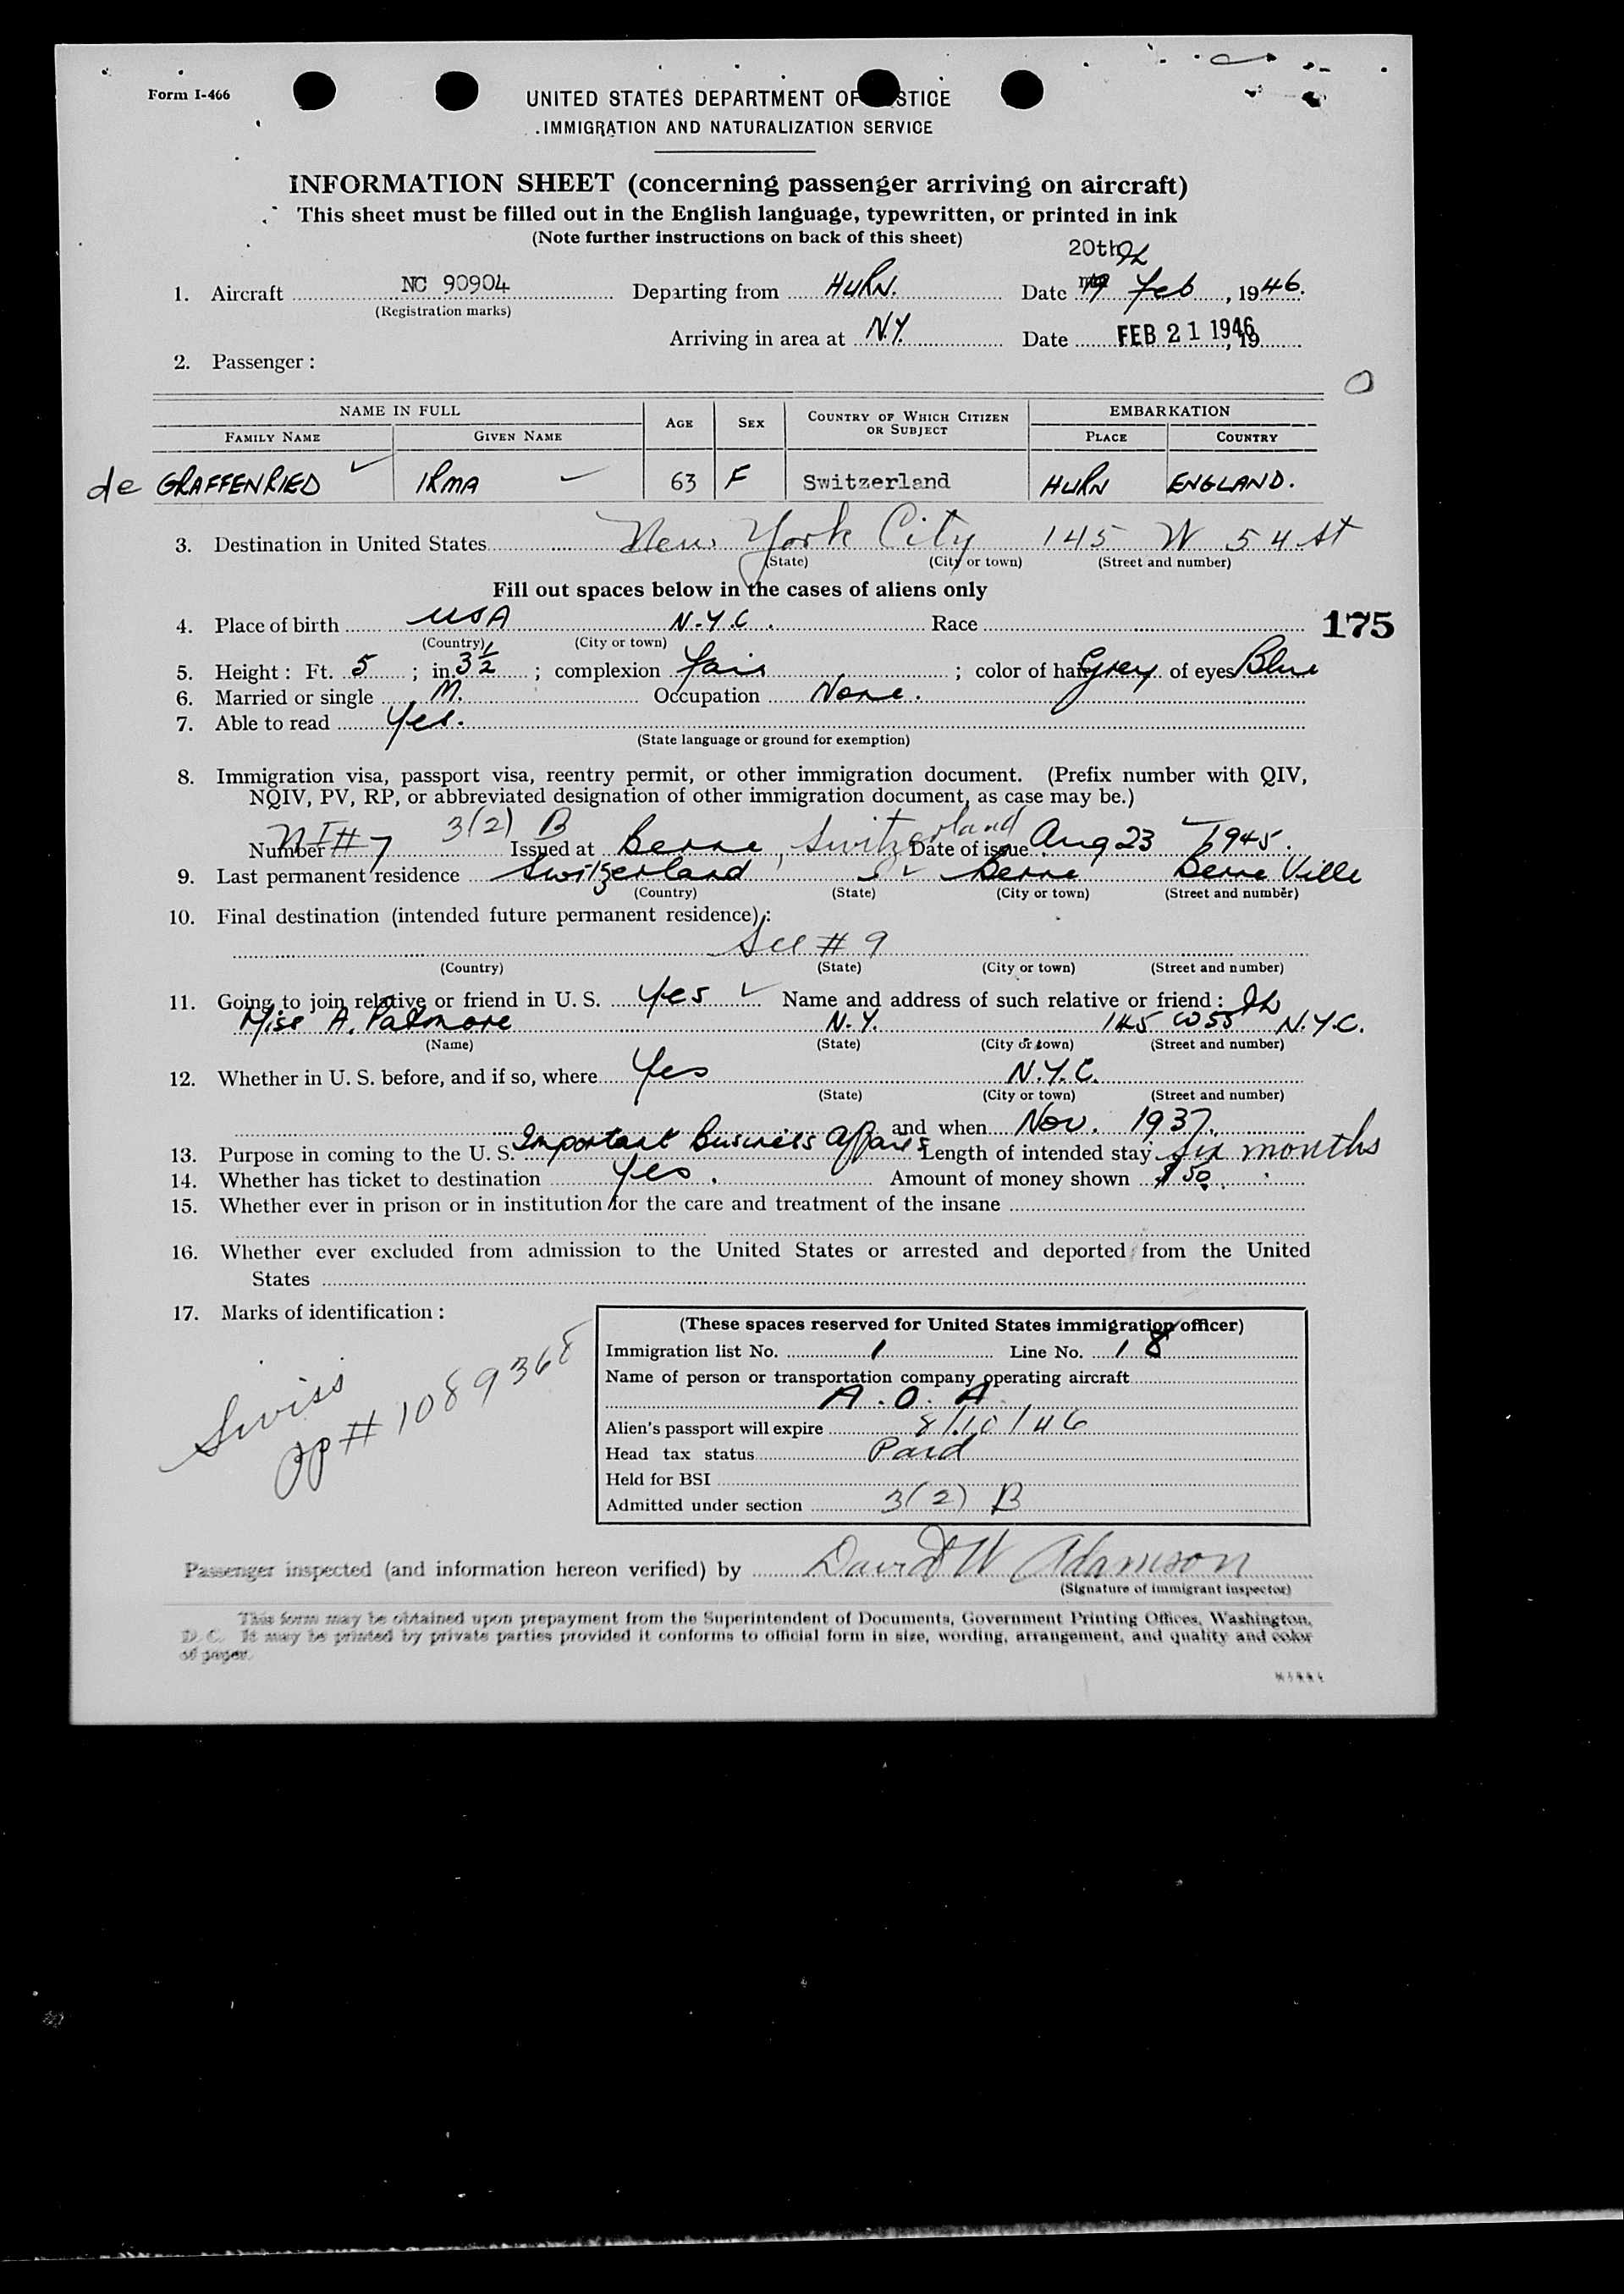 Form I-466
UNITED STATES DEPARTMENT OF STICE
IMMIGRATION AND NATURALIZATION SERVICE
INFORMATION SHEET (concerning passenger arriving on aircraft)
This sheet must be filled out in the English language, typewritten, or printed in ink
(Note further instructions on back of this sheet)
20th
1. Aircraft NC 90904 Departing from HURN. Date 19 Feb, 1946.
(Registration marks)
Arriving in area at N.Y. Date FEB 21 1946, 19
2. Passenger:
NAME IN FULL AGE SEX COUNTRY OF WHICH CITIZEN OR SUBJECT EMBARKATION
FAMILY NAME GIVEN NAME PLACE COUNTRY
de GRAFFENRIED IRMA 63 F Switzerland HURN ENGLAND.
3. Destination in United States New York City 145 W 54 St
(State) (City or town) (Street and number)
Fill out spaces below in the cases of aliens only
4. Place of birth USA N.Y.C. Race 175
(Country) (City or town)
5. Height: Ft. 5; in. 3½; complexion fair; color of hair Grey of eyes Blue
6. Married or single M. Occupation None.
7. Able to read Yes.
(State language or ground for exemption)
8. Immigration visa, passport visa, reentry permit, or other immigration document. (Prefix number with QIV,
NQIV, PV, RP, or abbreviated designation of other immigration document, as case may be.)
Number NI # 7 3(2) B Issued at Berne, Switzerland Date of issue Aug 23 1945.
9. Last permanent residence Switzerland Berne Berne Ville
(Country) (State) (City or town) (Street and number)
10. Final destination (intended future permanent residence):
See # 9
(Country) (State) (City or town) (Street and number)
11. Going to join relative or friend in U. S. Yes Name and address of such relative or friend:
Miss A. Patmore N.Y. 145 W 55 N.Y.C.
(Name) (State) (City or town) (Street and number)
12. Whether in U. S. before, and if so, where Yes N.Y.C.
(State) (City or town) (Street and number)
and when Nov. 1937.
13. Purpose in coming to the U. S. Important Business Affairs Length of intended stay six months
14. Whether has ticket to destination Yes. Amount of money shown $50.
15. Whether ever in prison or in institution for the care and treatment of the insane
16. Whether ever excluded from admission to the United States or arrested and deported from the United
States
17. Marks of identification:
Swiss
pp # 1089368
(These spaces reserved for United States immigration officer)
Immigration list No. 1 Line No. 18
Name of person or transportation company operating aircraft
A.O.A.
Alien's passport will expire 8/10/46
Head tax status Paid
Held for BSI
Admitted under section 3(2) B
Passenger inspected (and information hereon verified) by David W Adamson
(Signature of immigrant inspector)
This form may be obtained upon prepayment from the Superintendent of Documents, Government Printing Offices, Washington,
D. C. It may be printed by private parties provided it conforms to official form in size, wording, arrangement, and quality and color
of paper.